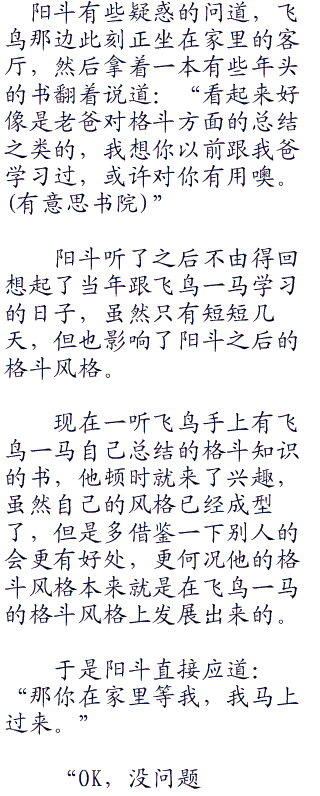 阳斗有些疑惑的问道，飞
鸟那边此刻正坐在家里的客
厅，然后拿着一本有些年头
的书翻着说道：“看起来好
像是老爸对格斗方面的总结
之类的，我想你以前跟我爸
学习过，或许对你有用噢。
(有意思书院)”
阳斗听了之后不由得回
想起了当年跟飞鸟一马学习
的日子，虽然只有短短几
天，但也影响了阳斗之后的
格斗风格。
现在一听飞鸟手上有飞
鸟一马自己总结的格斗知识
的书，他顿时就来了兴趣，
虽然自己的风格已经成型
了，但是多借鉴一下别人的
会更有好处，更何况他的格
斗风格本来就是在飞鸟一马
的格斗风格上发展出来的。
于是阳斗直接应道：
“那你在家里等我，我马上
过来。”
“OK，没问题